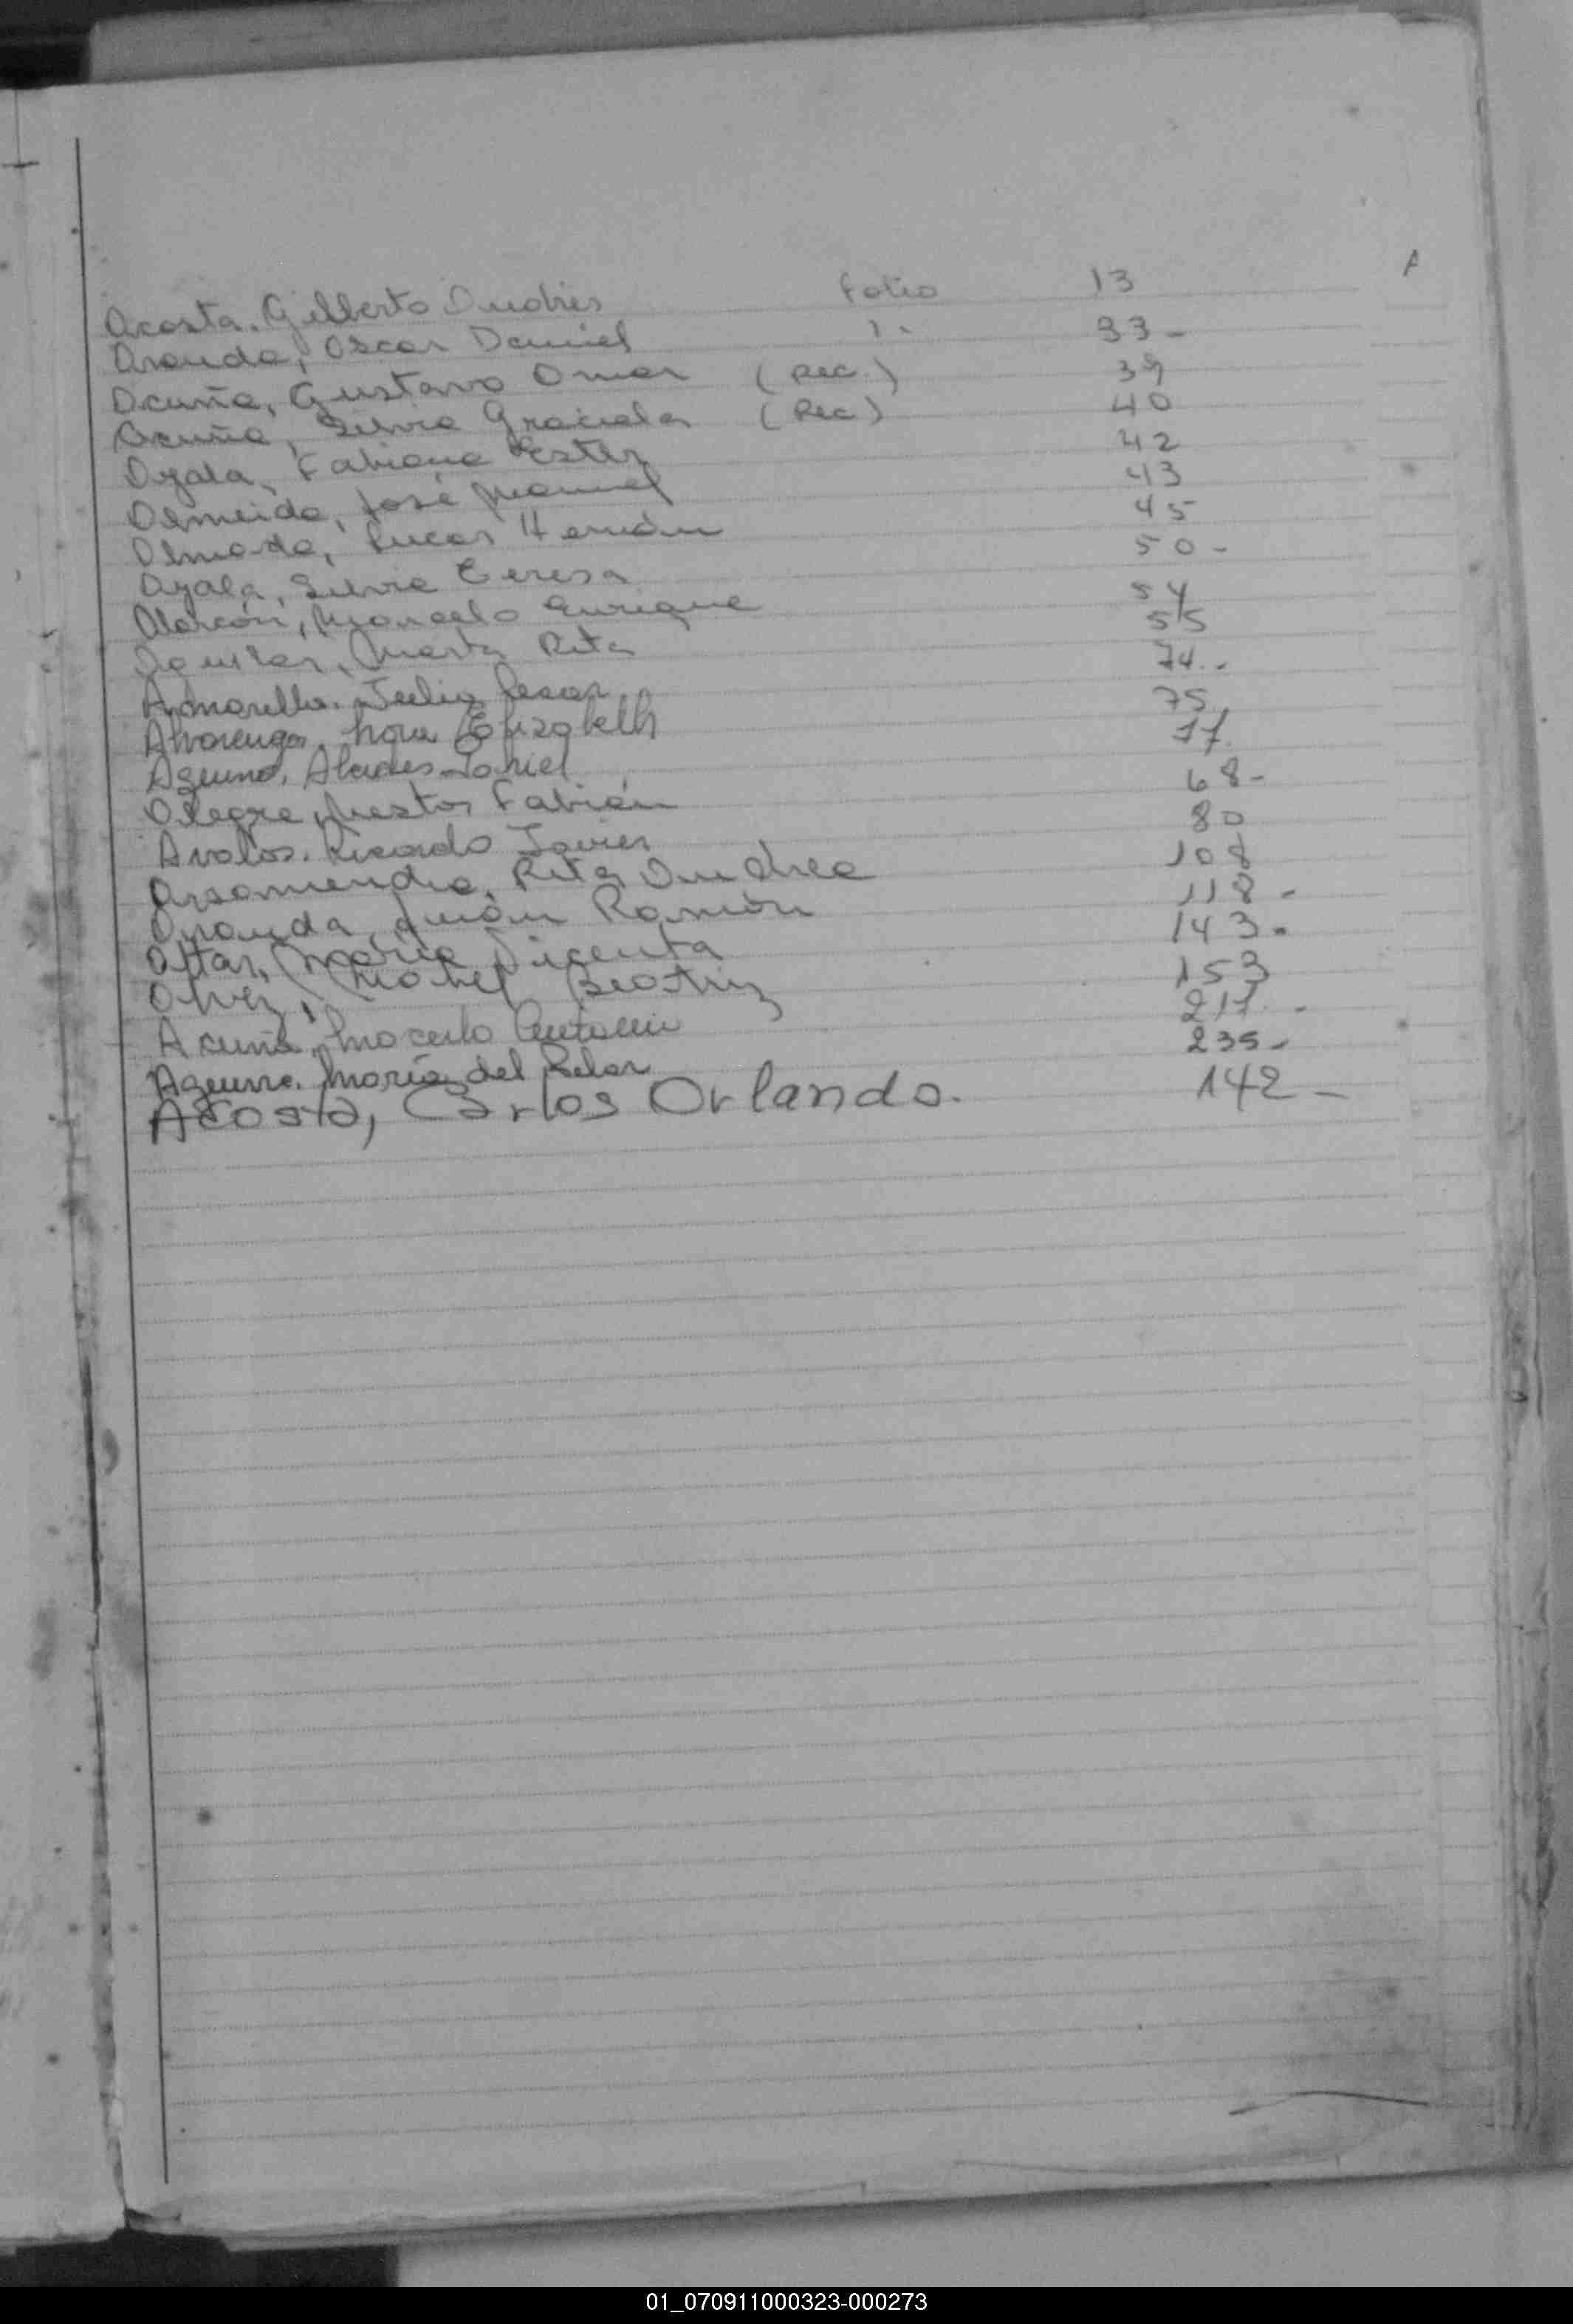 A
Acosta. Gilberto Andrés folio 13
Aranda, Oscar Daniel ". 33-
Acuña, Gustavo Omar (Rec.) 39
Acuña, Silvia Graciela (Rec) 40
Ayala, Fabiana Ester 42
Almeida, José Manuel 43
Almada, Lucas Hernán 45
Ayala, Silvia Teresa 50-
Alarcón, Marcelo Enrique 54
Aguilar, Marta Rita 55
Amarilla. Julio Cesar 74.-
Alvarenga, Nora Elizabeth 75
Aguirre. Alcides Daniel 77.
Alegre, Nestor Fabián 68-
Avalos. Ricardo Javier 80
Arsamendia, Rita Andrea 108
Aranda, Juán Ramón 118-
Attar, María Vicenta 143-
Alvez, Mabel Beatriz 153
Acuña, Marcelo Antonio 217.-
Aguirre. María del Pilar 235-
Acosta, Carlos Orlando. 142-
01_070911000323-000273